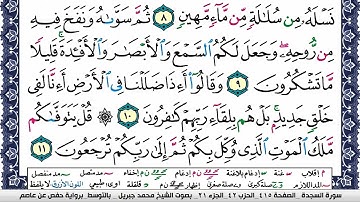 نَسْلَهُۥ مِن سُلَٰلَةٍ مِّن مَّآءٍ مَّهِينٍ ٨ ثُمَّ سَوَّىٰهُ وَنَفَخَ فِيهِ
مِن رُّوحِهِۦ وَجَعَلَ لَكُمُ ٱلسَّمْعَ وَٱلْأَبْصَٰرَ وَٱلْأَفْـِٔدَةَ قَلِيلًا
مَّا تَشْكُرُونَ ٩ وَقَالُوٓا۟ أَءِذَا ضَلَلْنَا فِى ٱلْأَرْضِ أَءِنَّا لَفِى
خَلْقٍ جَدِيدٍۭ بَلْ هُم بِلِقَآءِ رَبِّهِمْ كَٰفِرُونَ ١٠ قُلْ يَتَوَفَّىٰكُم
مَّلَكُ ٱلْمَوْتِ ٱلَّذِى وُكِّلَ بِكُمْ ثُمَّ إِلَىٰ رَبِّكُمْ تُرْجَعُونَ ١١
سورة السجدة الصفحة ٤١٥ الحزب ٤٢ الجزء ٢١ بصوت الشيخ محمد جبريل بالتوسط برواية حفص عن عاصم